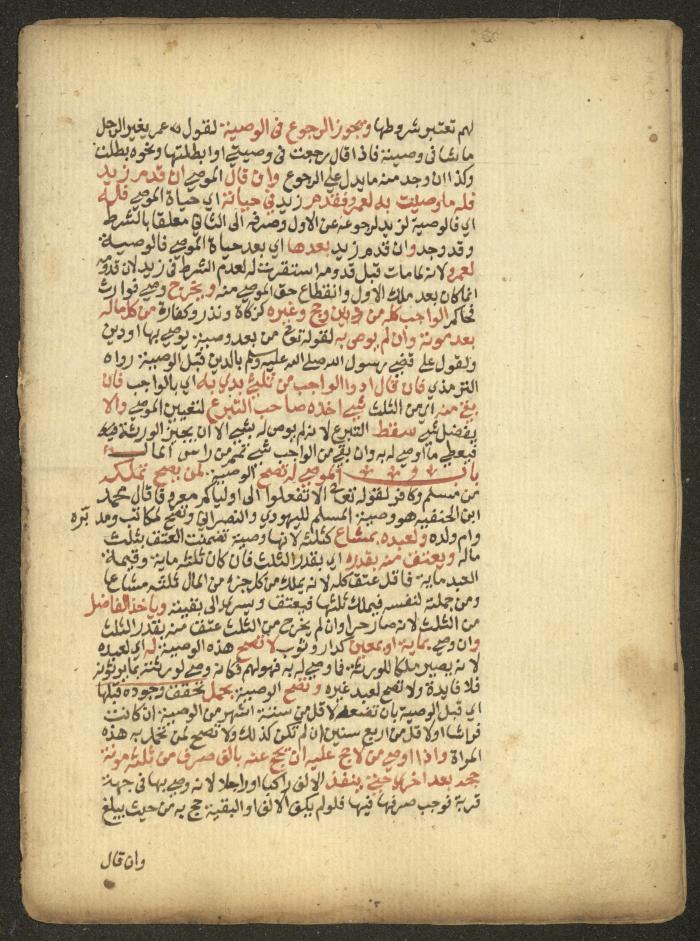 لهم تعتبر شروطها ويجوز الرجوع في الوصية لقول عمر يغير الرجل
ما شا في وصيته فاذا قال رجعت في وصيتي او ابطلتها ونحوه بطلت
وكذا ان وجد منه ما يدل علي الرجوع وان قال الموصي ان قدم زيد
فله ما وصيت به لعمرو فقدم زيد في حياته اي حياة الموصي فله
اي فالوصية لزيد لرجوعه عن الاول وصرفه الى الثاني معلقا بالشرط
وقد وجد وان قدم زيد بعدها اي بعد حياة الموصي فالوصية
لعمرو لانه لما مات قبل قدومه استقرت له لعدم الشرط في زيد لان قدومه
انما كان بعد ملك الاول وانقطاع حق الموصي منه ويخرج وصي فوارث
فحاكم الواجب كله من دين وحج وغيره كزكاة ونذر وكفارة من كل ماله
بعد موته وان لم يوص به لقوله تعالى من بعد وصية يوصي بها او دين
ولقول علي قضى رسول الله صلى الله عليه وسلم بالدين قبل الوصية رواه
الترمذي فان قال ادوا الواجب من ثلثي بدي به اي بالواجب فان
بقي منه اي من الثلث شيي اخذه صاحب التبرع لتعيين الموصي والا
يفضل شي سقط التبرع لانه لم يوص له بشيي الا ان يجيز الورثة
فيعطي ما اوصي له به وان بقي من الواجب شي تمم من راس المال
باب الموصي له تصح الوصية لمن يصح تملكه
من مسلم وكافر لقوله تعالى الا ان تفعلوا الى اولياكم معروفا قال محمد
ابن الحنفيه هو وصية المسلم لليهودي والنصراني وتصح لمكاتبه ومدبره
وام ولده ولعبده بمشاع كثلثه لانها وصية تضمنت العتق بثلث
ماله ويعتق منه بقدره اي بقدر الثلث فان كان ثلثه ماية وقيمة
العبد ماية فاقل عتق كله لانه يملك من كل جزء من المال ثلثه مشاعا
ومن جملته نفسه فيملك ثلثها فيعتق ويسري الى بقيته وياخذ الفاضل
من الثلث لانه صار حرا وان لم يخرج من الثلث عتق منه بقدر الثلث
وان وصى بماية او بمعين كدار وثوب لا تصح هذه الوصية له اي لعبده
لانه يصير ملكا للورثة فما وصي له به فهو لهم فكانه وصي لورثته بما يرثونه
فلا فايدة ولا تصح لعبد غيره وتصح الوصية بحمل تحقق وجوده قبلها
اي قبل الوصية بان تضعه لاقل من ستة اشهر من الوصية ان كانت
فراشا او لاقل من اربع سنين ان لم تكن كذلك ولا تصح لمن تحمل به هذه
المراة واذا اوصي من لا حج عليه ان يحج عنه بالف صرف من ثلثه مونة
حجة بعد اخرى حتى ينفذ الالف راكبا او راجلا لانه وصي بها في جهة
قربة فوجب صرفها فيها فلو لم يكف الالف او البقية حج به من حيث يبلغ
وان قال